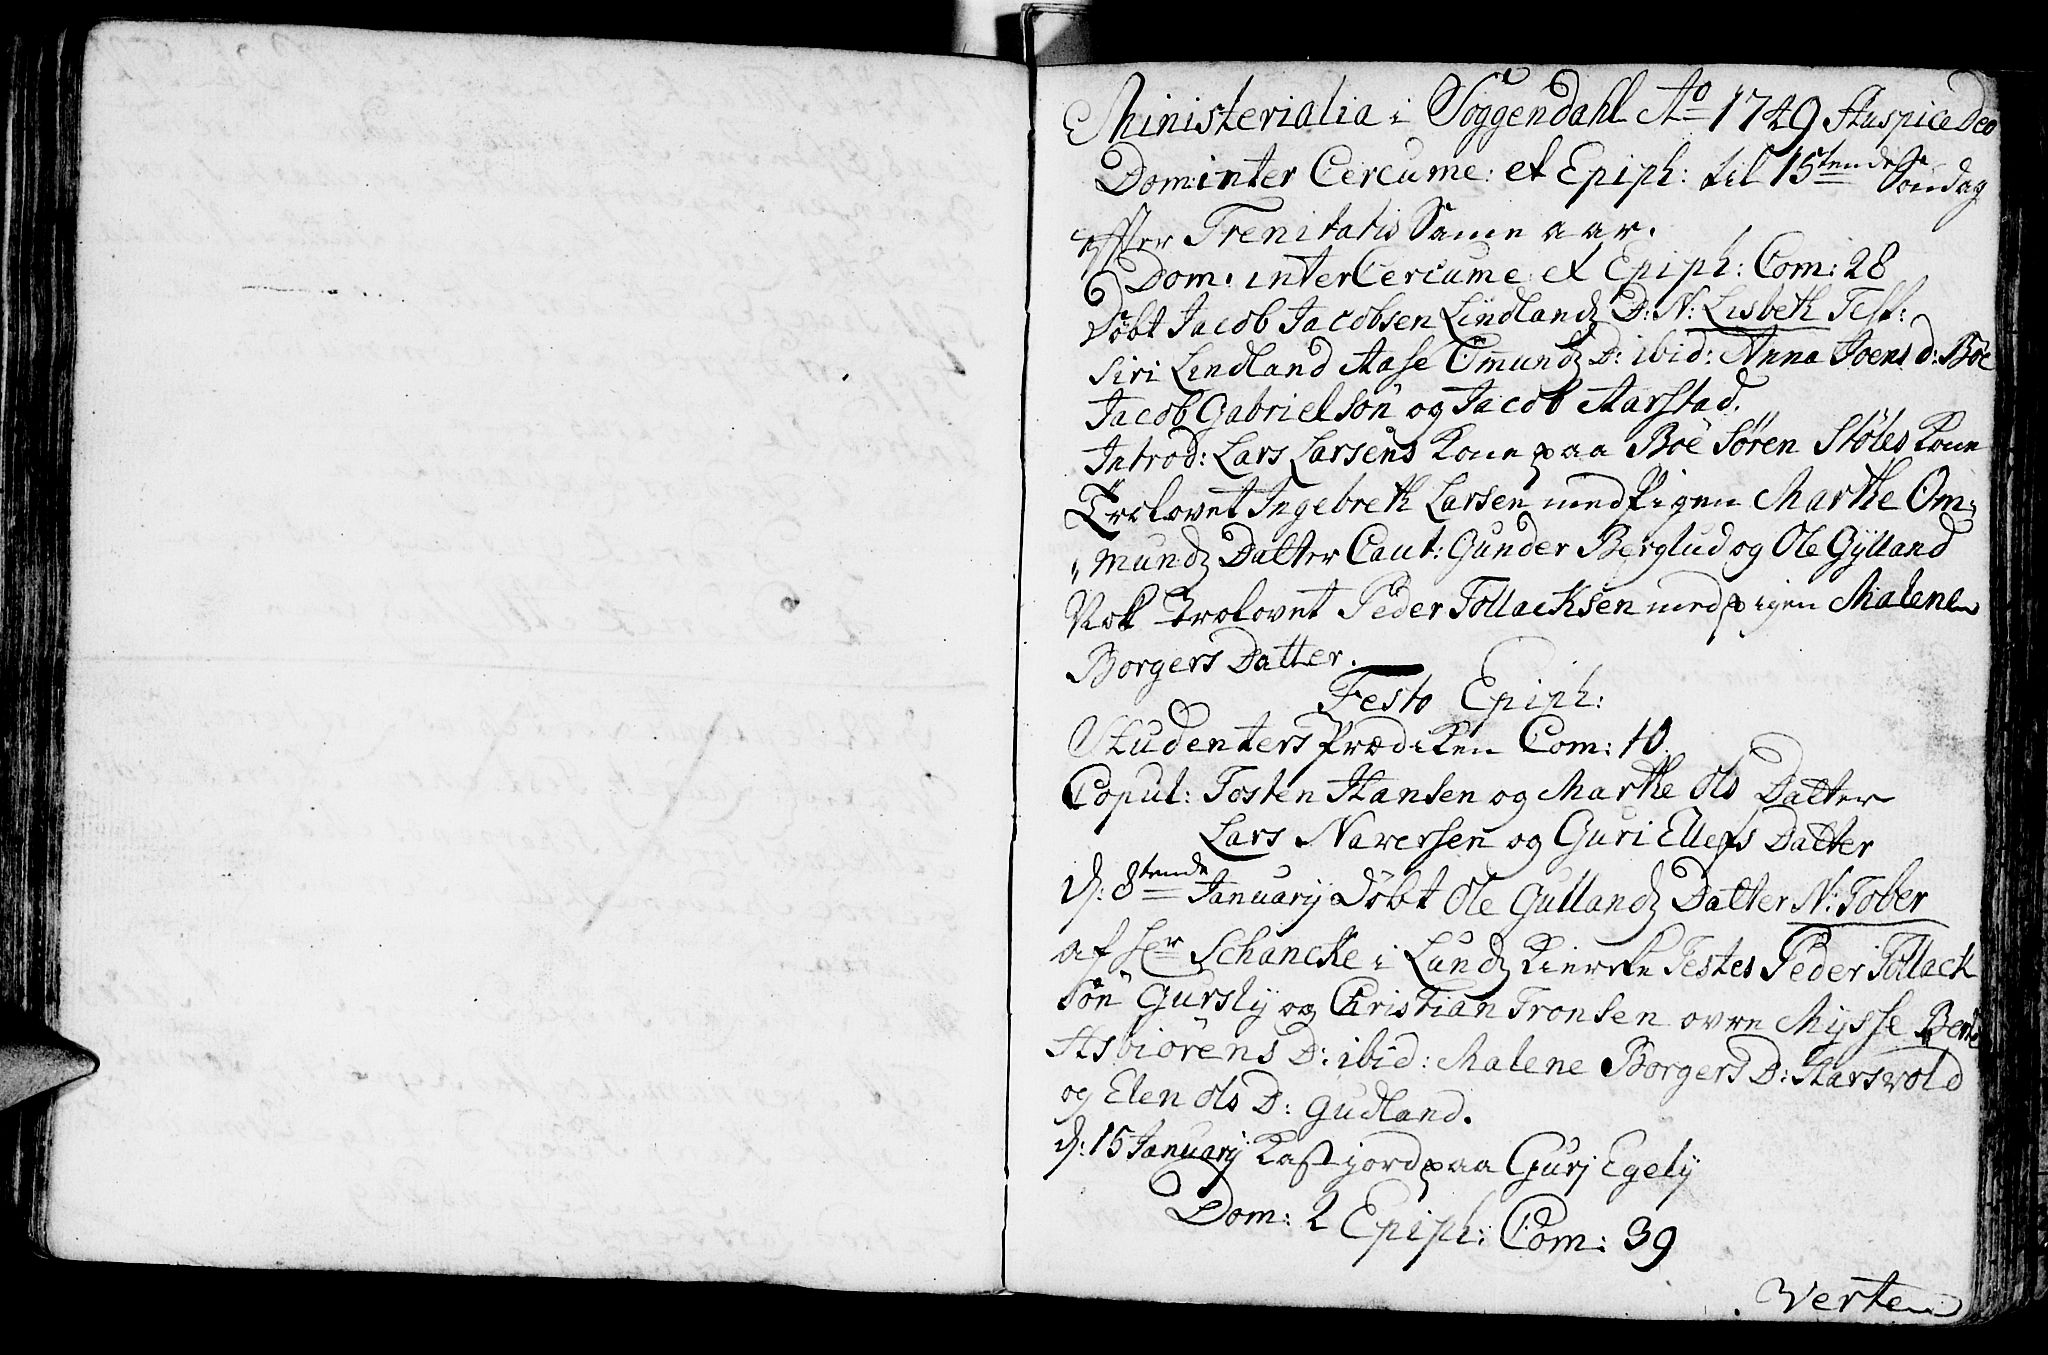 Ministerialia i Soggendahl Ao 1749 Auspice Deo
Dom: inter Cercume: et Epiph: til 15tende Søndag
effter Trenitatis Same aar.
Dom. inter Cercume: et Epiph: Com: 28
Døbt Jacob Jacobsen Lindlands D: N: Lisbeth Test:
Siri Lindland Aase Omunds D: ibid: Anna Joens d: Böe
Jacob Gabrielsön og Jacob Aarstad.
Introd: Lars Larsens Kone paa Böe Sören Stöles Kone
Trolovet Ingebreth Larsen med Pigen Marthe Om,,
,,munds Datter Caut: Gunder Berglud og Ole Gÿlland
Nok Trolovet Peder Tollacksen med pigen Malene
Borgers Datter.
Festo Epiph:
Studenters Prædiken Com: 10.
Copul: Tosten Hansen og Marthe Ols Datter
Lars Naversen og Guri Ellefs Datter
d: 8tende Januarÿ Döbt Ole Gullands Datter N: Tober
af Hr Schancke i Lunds Kierke Testes Peder Tollack
sön Gurslÿ og Christian Tronsen ovre Mysse Berte
Asbiörens D: ibid: Malene Borgers D: Aarsvold
og Elen Ols D: Gudland.
d: 15 Januarÿ Kast jord paa Guri Egelÿ
Dom: 2 Epiph: Com: 39
Verte